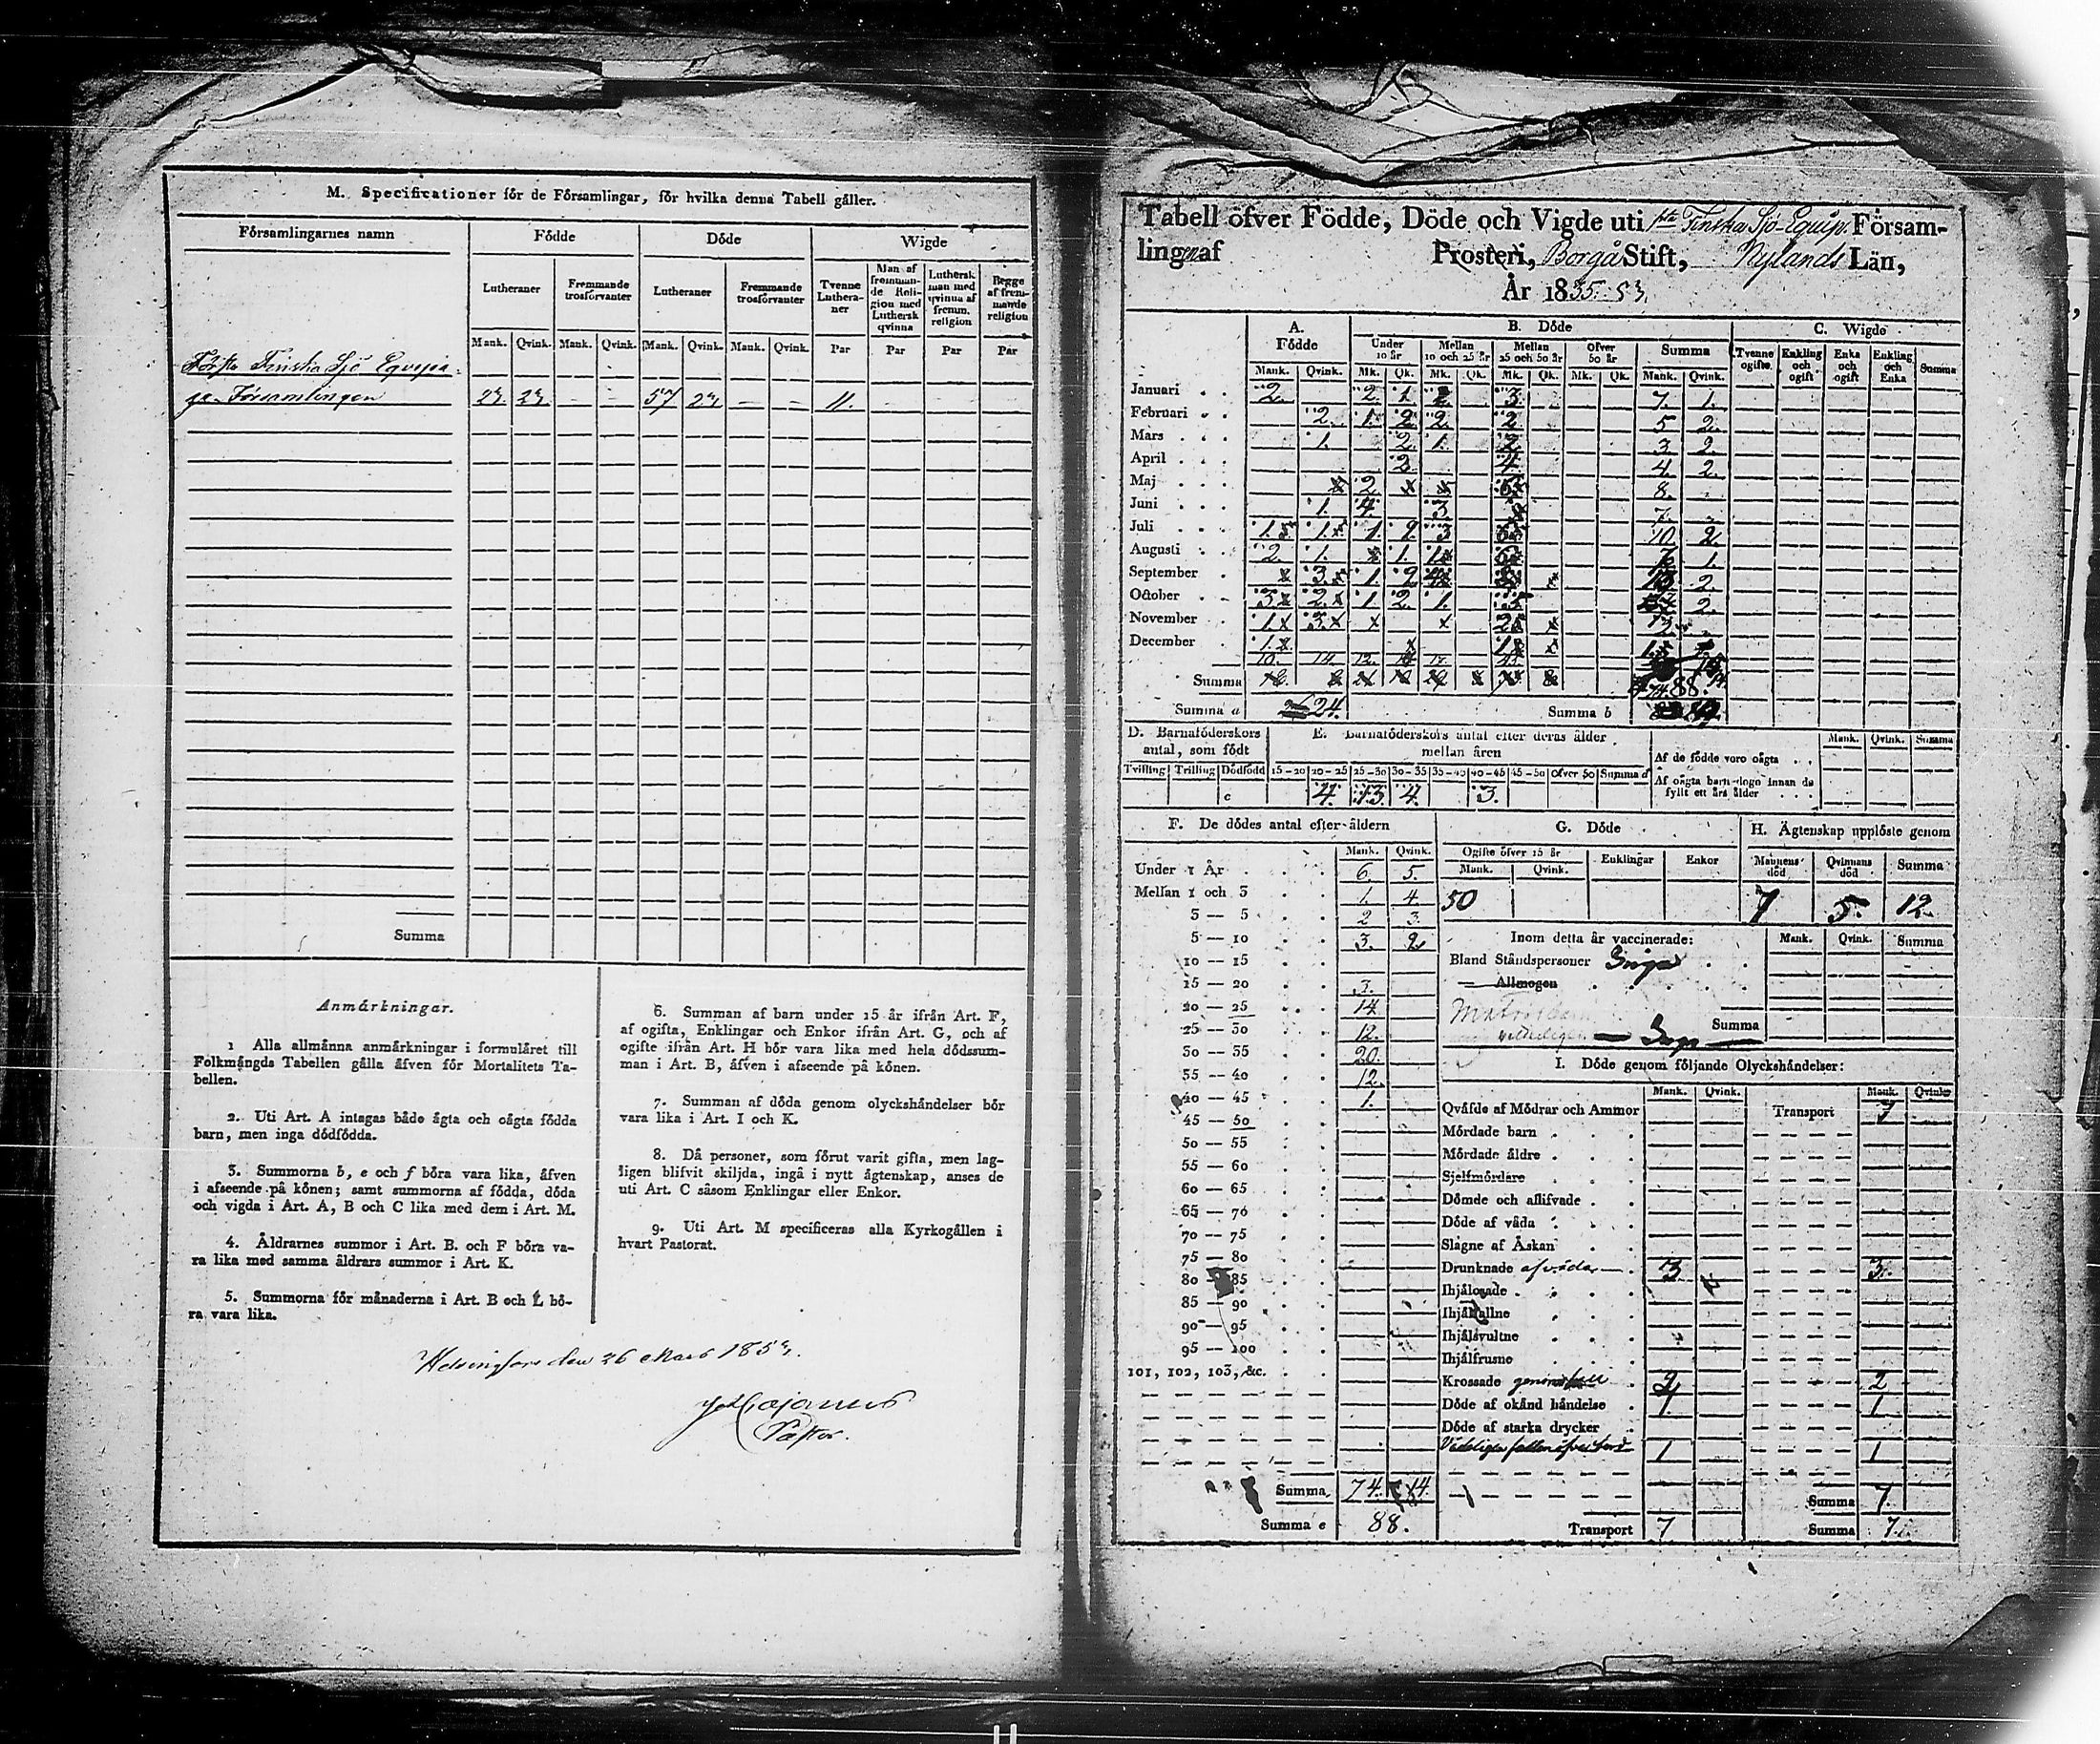 M. Specificationer fór de Fórsamlingar, fór hvilka denna Tabell gäller.
Fórsamlingarnes namn
Fódde
Dóde
Wigde
Lutheraner
Fremmande trosförvanter
Lutheraner
Fremmande trosförvanter
Tvenne Luthera-ner
Man af fremman-de Reli-gion med Luthersk qvinna
Luthersk man med qvinna af fremm. religion
Begge af frem-mande religion
Mank. Qvink. Mank. Qvink. Mank. Qvink. Mank. Qvink. Par Par Par Par
Första Finska Sjö Equipa-
ge-Församlingen 23. 23. — — 57 23 — — 11.
Summa
Anmärkningar.
1 Alla allmänna anmärkningar i formuläret till
Folkmängds Tabellen gälla äfven fór Mortalitets Ta-
bellen.
2. Uti Art. A intagas både ägta och oägta födda
barn, men inga dödfödda.
3. Summorna b, e och f böra vara lika, äfven
i afseende på könen; samt summorna af födda, döda
och vigda i Art. A, B och C lika med dem i Art. M.
4. Åldrarnes summor i Art. B. och F böra va-
ra lika med samma åldrars summor i Art. K.
5. Summorna för månaderna i Art. B och L bö-
ra vara lika.
6. Summan af barn under 15 år ifrån Art. F,
af ogifta, Enklingar och Enkor ifrån Art. G, och af
ogifte ifrån Art. H bör vara lika med hela dödssum-
man i Art. B, äfven i afseende på könen.
7. Summan af döda genom olyckshändelser bör
vara lika i Art. I och K.
8. Då personer, som förut varit gifta, men lag-
ligen blifvit skiljda, ingå i nytt ägtenskap, anses de
uti Art. C såsom Enklingar eller Enkor.
9. Uti Art. M specificeras alla Kyrkogällen i
hvart Pastorat.
Helsingfors den 26 Mars 1853.
Pastor.
Tabell öfver Födde, Döde och Vigde uti 1sta Finska Sjö-Equip. Försam-
lingen af Prosteri, Borgå Stift, Nylands Län,
År 1835. 53.
A. Födde
B. Döde
C. Wigde
Under 10 år
Mellan 10 och 25 år
Mellan 25 och 50 år
Öfver 50 år
Summa
Tvenne ogifte
Enkling och ogift
Enka och ogift
Enkling och Enka
Summa
Mank. Qvink. Mk. Qk. Mk. Qk. Mk. Qk. Mk. Qk. Mank. Qvink.
Januari 2. 2. 1. 3. 7. 1.
Februari 2. 1. 2. 2. 2 5 2.
Mars 1. 2 1. 2 3 2.
April 2 4 4. 2.
Maj 2 8.
Juni 1. 4. 3 7.
Juli 1. 1. 1. 2. 3 10 2.
Augusti 2. 1. 1. 1 1.
September 3. 1. 2 2.
October 3 2. 1 2. 1. 2.
November 1 3 2
December 1. 1
10. 14 12.
Summa 88.
Summa a 24.
Summa b
D. Barnaföderskors antal, som födt
E. Barnaföderskors antal efter deras ålder mellan åren
Tvilling Trilling Dödfödd 15–20 20–25 25–30 30–35 35–40 40–45 45–50 öfver 50 Summa d
c 4. 13. 4. 3.
Mank. Qvink. Summa
Af de födde voro oägta
Af oägta barn dogo innan de
fyllt ett års ålder
F. De dödes antal efter åldern
Mank. Qvink.
Under 1 År 6. 5.
Mellan 1 och 3 1. 4.
3 — 5 2 3.
5 — 10 3. 2
10 — 15
15 — 20 3.
20 — 25 14
25 — 30 12.
30 — 35 20.
35 — 40 12.
40 — 45 1.
45 — 50
50 — 55
55 — 60
60 — 65
65 — 70
70 — 75
75 — 80
80 85
85 — 90
90 — 95
95 — 100
101, 102, 103, &c.
Summa 74. 14.
Summa e 88.
G. Döde
Ogifte öfver 15 år
Enklingar
Enkor
Mank. Qvink.
50
H. Ägtenskap upplöste genom
Mannens död
Qvinnans död
Summa
7 5. 12.
Inom detta år vaccinerade: Mank. Qvink. Summa
Bland Ståndspersoner Inga
— Allmogen
Summa
I. Döde genom följande Olyckshändelser:
Mank. Qvink. Mank. Qvink.
Qväfde af Mödrar och Ammor Transport 7
Mördade barn
Mördade äldre
Sjelfmördare
Dömde och aflifvade
Döde af våda
Slagne af Åskan
Drunknade af våda 3 3.
Ihjälosade
Ihjälfallne
Ihjälsvultne
Ihjälfrusne
Krossade genom fall 2 2
Döde af okänd händelse 1. 1
Döde af starka drycker
1 1
Summa 7.
Transport 7 Summa 7.